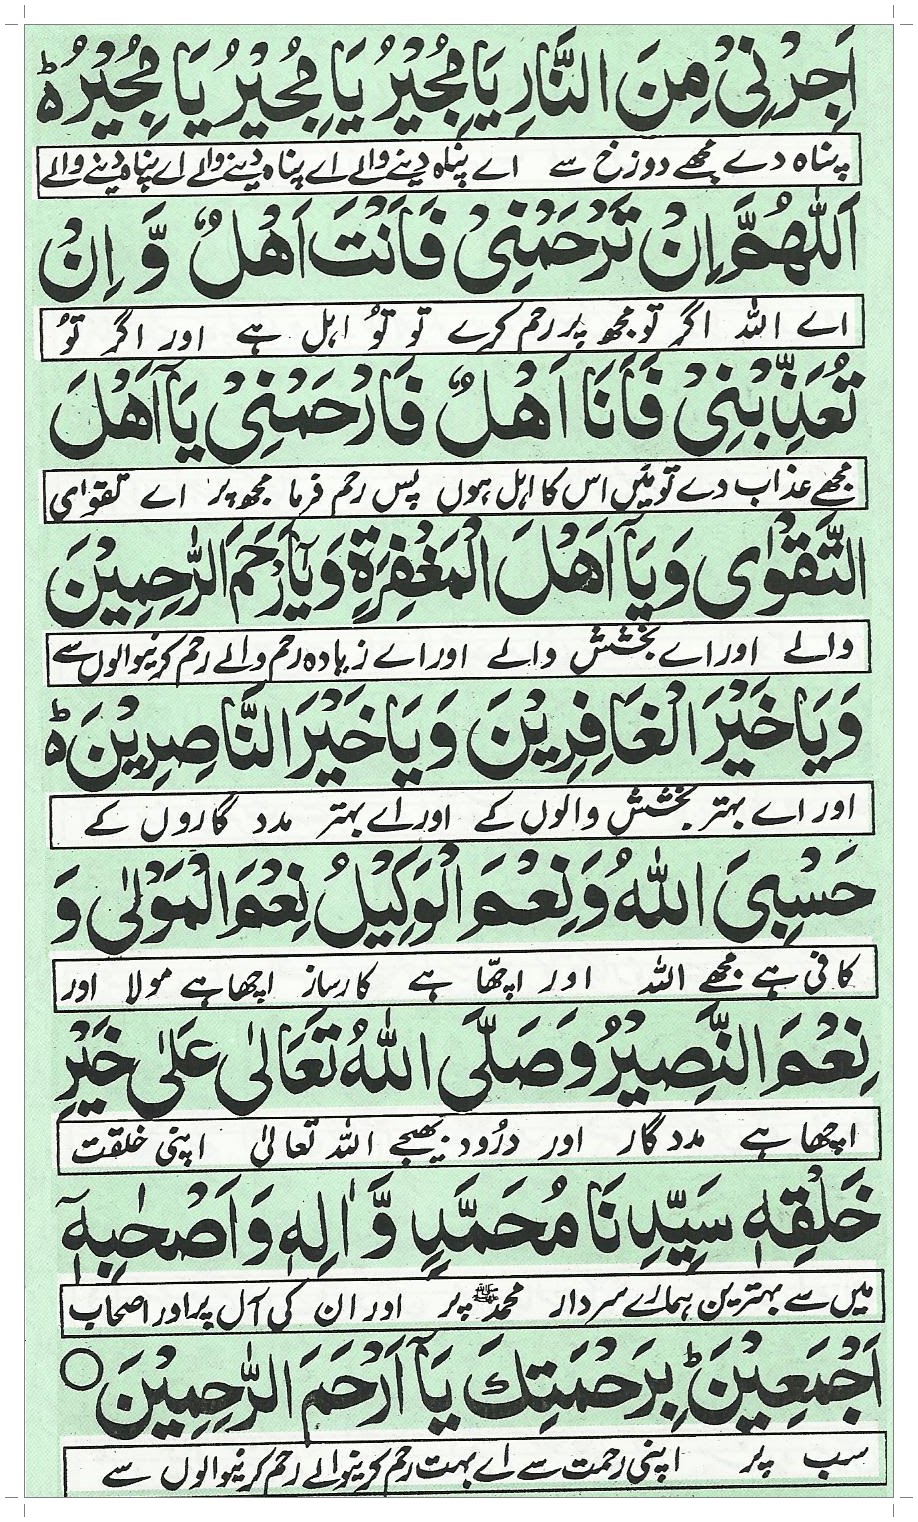 اَجِرْنِیْ مِنَ النَّارِ یَا مُجِیْرُ یَا مُجِیْرُ یَا مُجِیْرُ ؕ
پناہ دے مجھے دوزخ سے اے پناہ دینے والے اے پناہ دینے والے اے پناہ دینے والے
اَللّٰهُمَّ اِنْ تَرْحَمْنِیْ فَاَنْتَ اَهْلٌ وَّ اِنْ
اے اللہ اگر تو مجھ پر رحم کرے تو تُو اہل ہے اور اگر تُو
تُعَذِّبْنِیْ فَاَنَا اَهْلٌ فَارْحَمْنِیْ یَآ اَهْلَ
مجھے عذاب دے تو میَں اس کا اہل ہوں پس رحم فرما مجھ پر اے تقوٰی
التَّقْوٰی وَ یَآ اَهْلَ الْمَغْفِرَةِ وَ یَآ اَرْحَمَ الرّٰحِمِیْنَ
والے اور اے بخشش والے اور اے زیادہ رحم والے رحم کرنیوالوں سے
وَ یَا خَیْرَ الْغَافِرِیْنَ وَ یَا خَیْرَ النَّاصِرِیْنَ ؕ
اور اے بہتر بخشش والوں کے اور اے بہتر مدد گاروں کے
حَسْبِیَ اللّٰهُ وَ نِعْمَ الْوَکِیْلُ نِعْمَ الْمَوْلٰی وَ
کافی ہے مجھے اللہ اور اچھّا ہے کارساز اچھا ہے مولا اور
نِعْمَ النَّصِیْرُ وَ صَلَّی اللّٰهُ تَعَالٰی عَلٰی خَیْرِ
اچھا ہے مددگار اور درُود بھیجے اللہ تعالیٰ اپنی خلقت
خَلْقِهٖ سَیِّدِنَا مُحَمَّدٍ وَّ اٰلِهٖ وَ اَصْحٰبِهٖٓ
میں سے بہترین ہمارے سردار محمد ﷺ پر اور ان کی آل پر اور اصحاب
اَجْمَعِیْنَ ؕ بِرَحْمَتِكَ یَآ اَرْحَمَ الرّٰحِمِیْنَ ○
سب پر اپنی رحمت سے اے بہت رحم کرنیوالے رحم کرنیوالوں سے